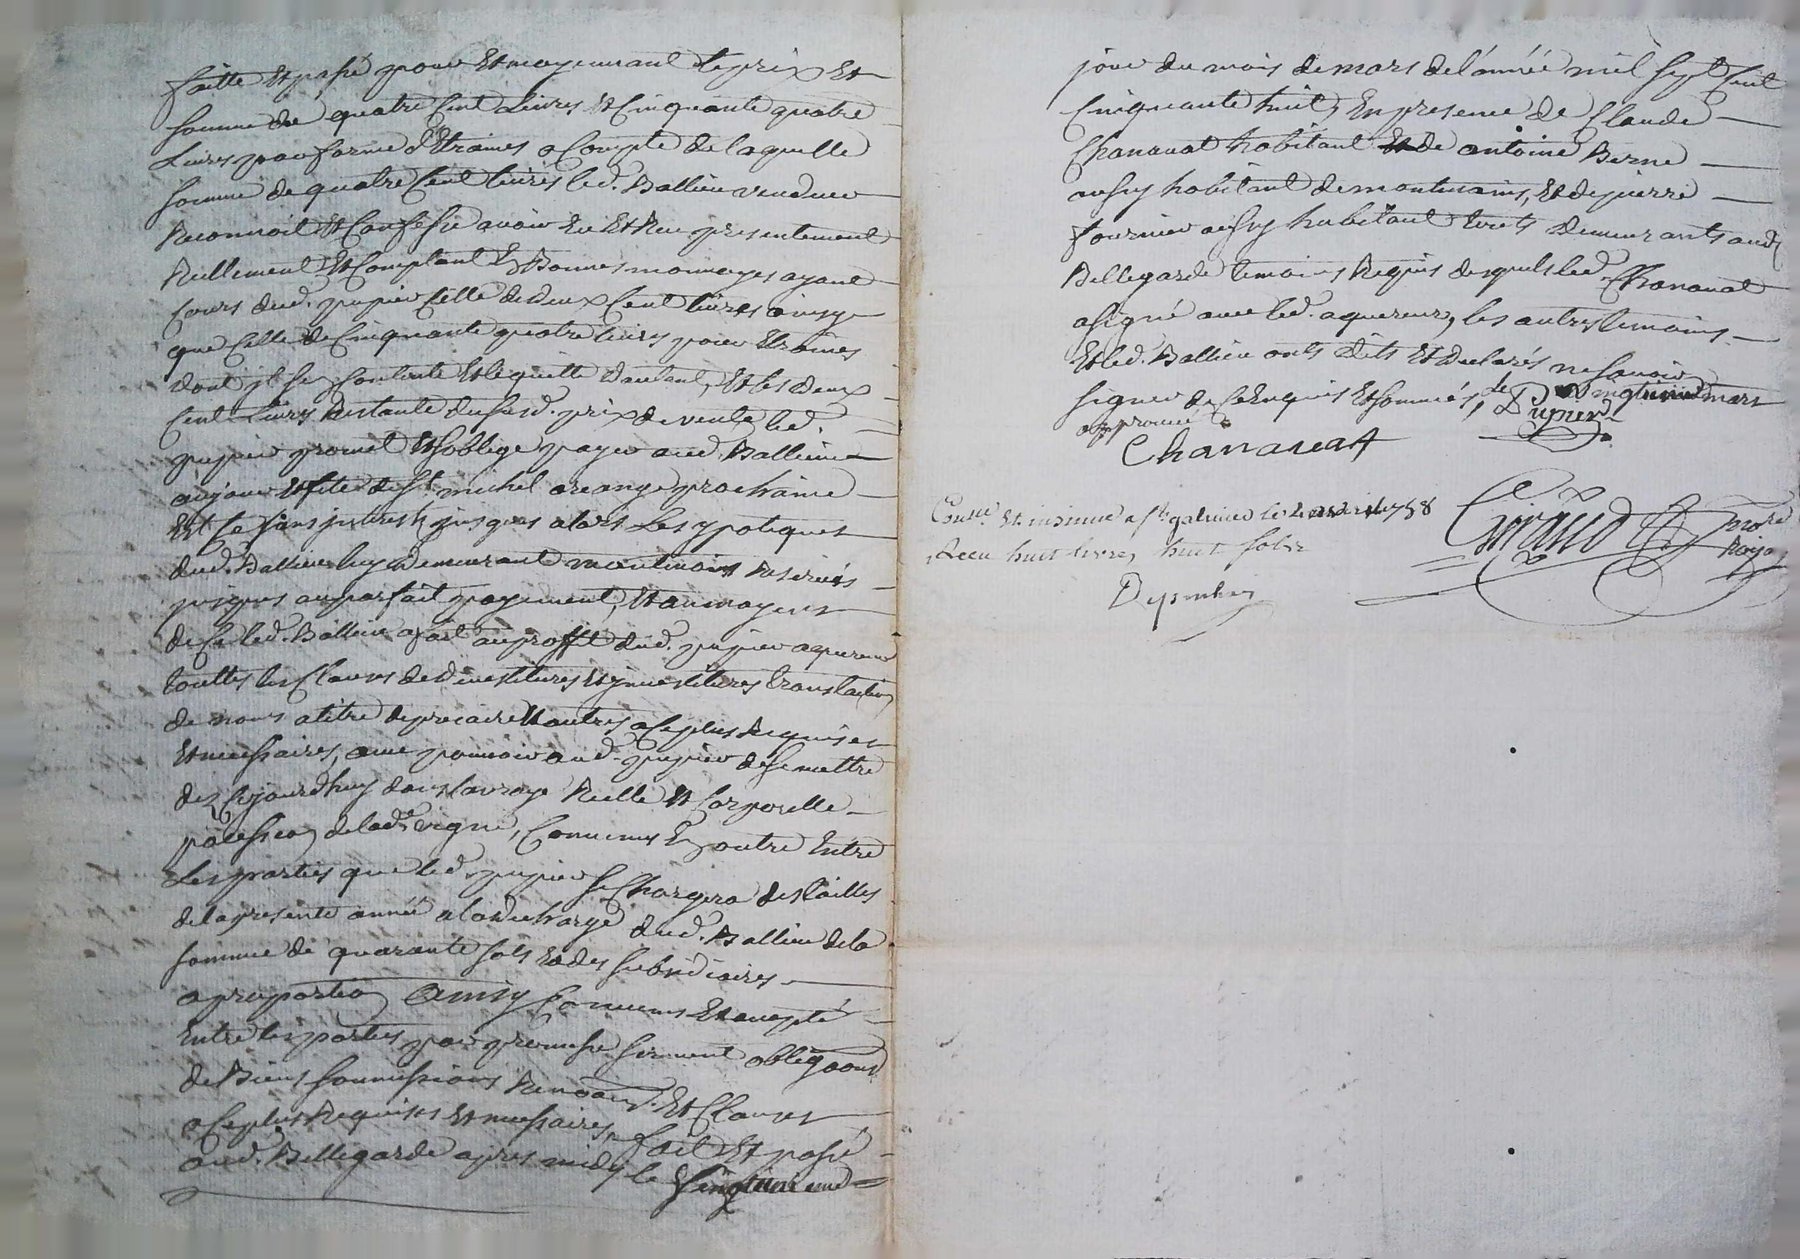 faitte Et passé pour Et moyennant le prix Et
somme de quatre Cent Livres Et Cinquante quatre
Livres pour forme d'Etraines a Compte de laquelle
somme de quatre Cent livres led. Ballieu vendeur
Reconnoit Et Confesse avoir Eu Et Reçu presentement
Reellement Et Comptant En Bonnes monnoyes ayant
Cours dud. pupier Celle de deux Cent livres ainsy
que Celle de Cinquante quatre livres pour Etraines
dont il se Contente Et le quitte d'autant, Et les deux
Cent Livres Restante du susd. prix de vente led.
pupier promet Et s'oblige payer aud. Ballieu
au jour Et fete de St. michel arcange prochaine
Et Ce sans interest jusques alors Les ypoteques
dud. Ballieu luy demeurant neantmoins Reservés
jusques au parfait payement, Et au moyens
de Ce led. Ballieu a fait au proffit dud. pupier aquereur
touttes les Clauses de devestitures Et jnvestitures translation
de noms a titre de precaire Et autres a Ce plus Requises
Et necessaires, avec pouvoir aud. pupier de se mettre
dez Cejourd'huy dans la vraye Reelle Et Corporelle
possession de lade. vigne, Convenus En outre Entre
Les parties que led. pupier se Chargera des tailles
de la presente année a la decharge dud. Ballieu de la
somme de quarante sols Et des subsidiaires
a proportion Ainsy Convenus Et accepté
Entre les parties par promesse serment obligaons
de Biens soumissions Renoaons. Et Clauses
a Ce plus Requises Et necessaires, fait Et passé
aud. Bellegarde apres midy le Vingtunieme
jour du mois de mars de l'année mil sept Cent
Cinquante huit, En presence de Claude
Chanavat habitant Et de antoine Berne
aussy habitant de montverains, Et de pierre
fournier aussy habitant touts demeurants aud.
Bellegarde temoins Requis desquels led. Chanavat
a signé avec led. aquereur, les autres temoins
Et led. Ballieu onts dits Et declarés ne scavoir
signer de Ce Enquis Et sommés, le vingtunieme mars
approuvé
Pupier
Chanavat
Contlé. Et insinué a St. galmier le avril 1758
Reçu huit livres huit sols
Giraud Nore. Royal